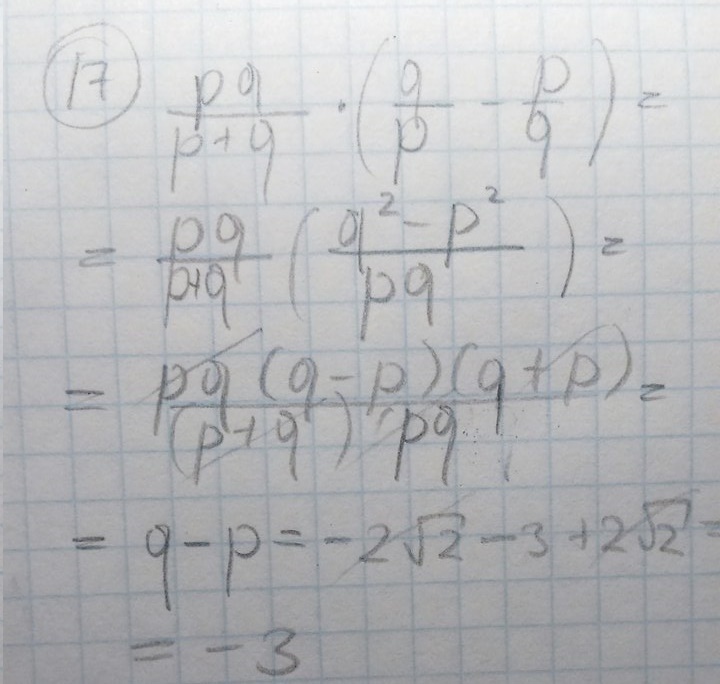 17 pq/(p+q) · (q/p - p/q) =
= pq/(p+q) ((q² - p²)/(pq)) =
= (pq (q - p)(q + p))/((p + q) pq) =
= q - p = -2√2 - 3 + 2√2 =
= -3